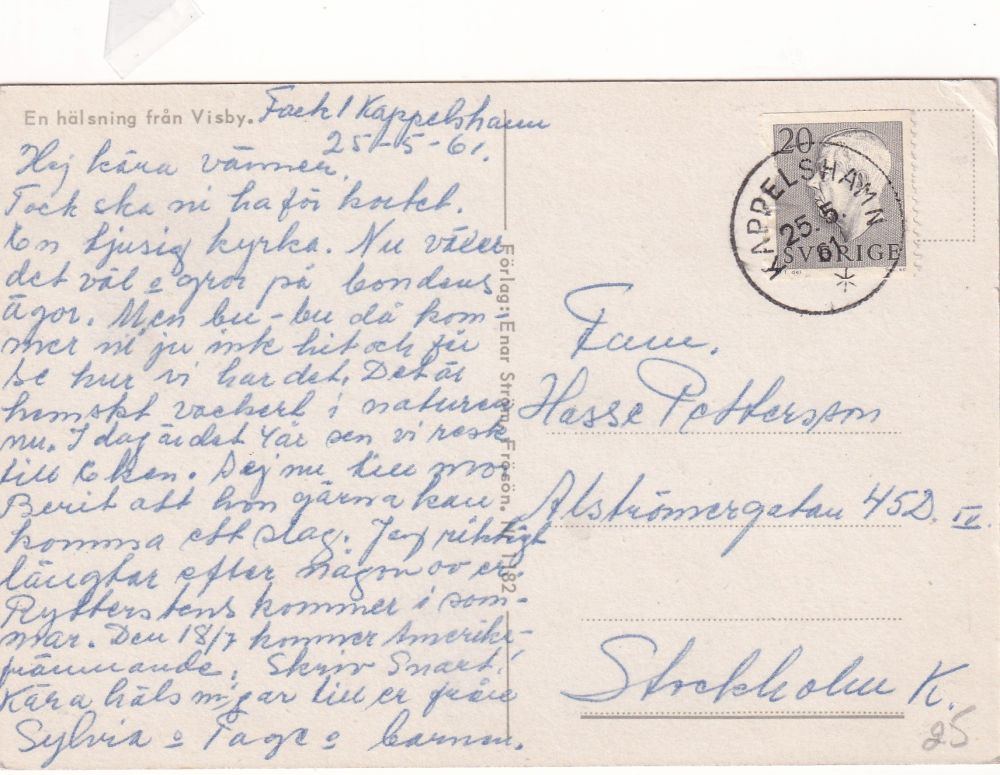 En hälsning från Visby. Fack 1 Kappelshamn
25-5-61.
Hej kära vänner.
Tack ska ni ha för kortet.
En tjusig kyrka. Nu växer
det väl o gror på bondens
ägor. Men bu-bu då kom-
mer ni ju inte hit och får
se hur vi har det. Det är
hemskt vackert i naturen
nu. I dag är det 4 år sen vi reste
till Eken. Säj nu till
Berit att hon gärna kan
komma ett slag. Jag riktigt
längtar efter någon av er.
Rytterstens kommer i som-
mar. Den 18/7 kommer Amerika-
främmande. Skriv Snart!
Kära hälsningar till er från
Sylvia o Tage o barnen.
Förlag: Enar Ström, Frösön. 182
20
SVERIGE
KAPPELSHAMN
25. 5. 61
Fam.
Hasse Pettersson
Alströmergatan 45D. IV.
Stockholm K.
25